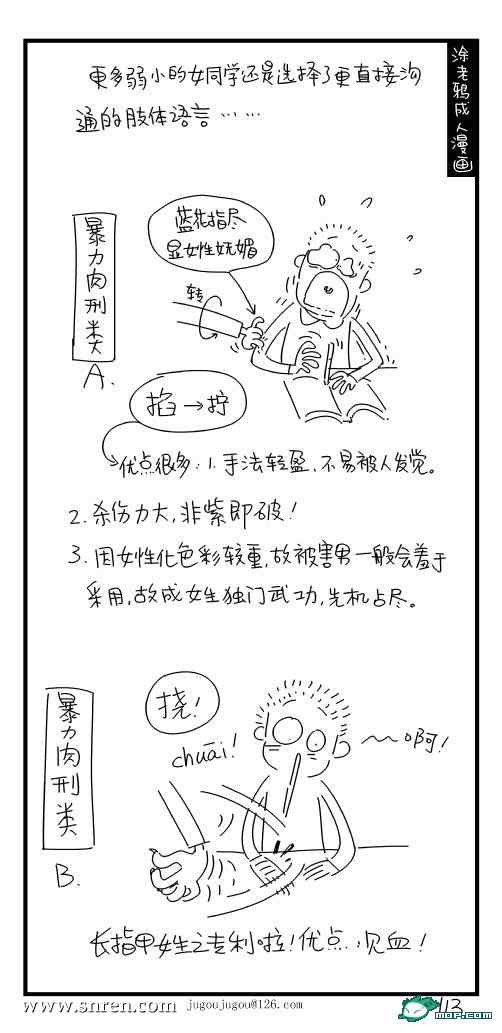 涂老鸦成人漫画
更多弱小的女同学还是选择了更直接沟
通的肢体语言……
暴力肉刑类
A.
兰花指尽
显女性妩媚
转
掐→拧
优点很多:1.手法轻盈,不易被人发觉。
2.杀伤力大,非紫即破!
3.因女性化色彩较重,故被害男一般会羞于
采用,故成女生独门武功,先机占尽。
暴力肉刑类
B.
挠!
chuāi!
~~啊!
长指甲女生之专利啦!优点:见血!
www.snren.com
jugoujugou@126.com
113
MOP.COM